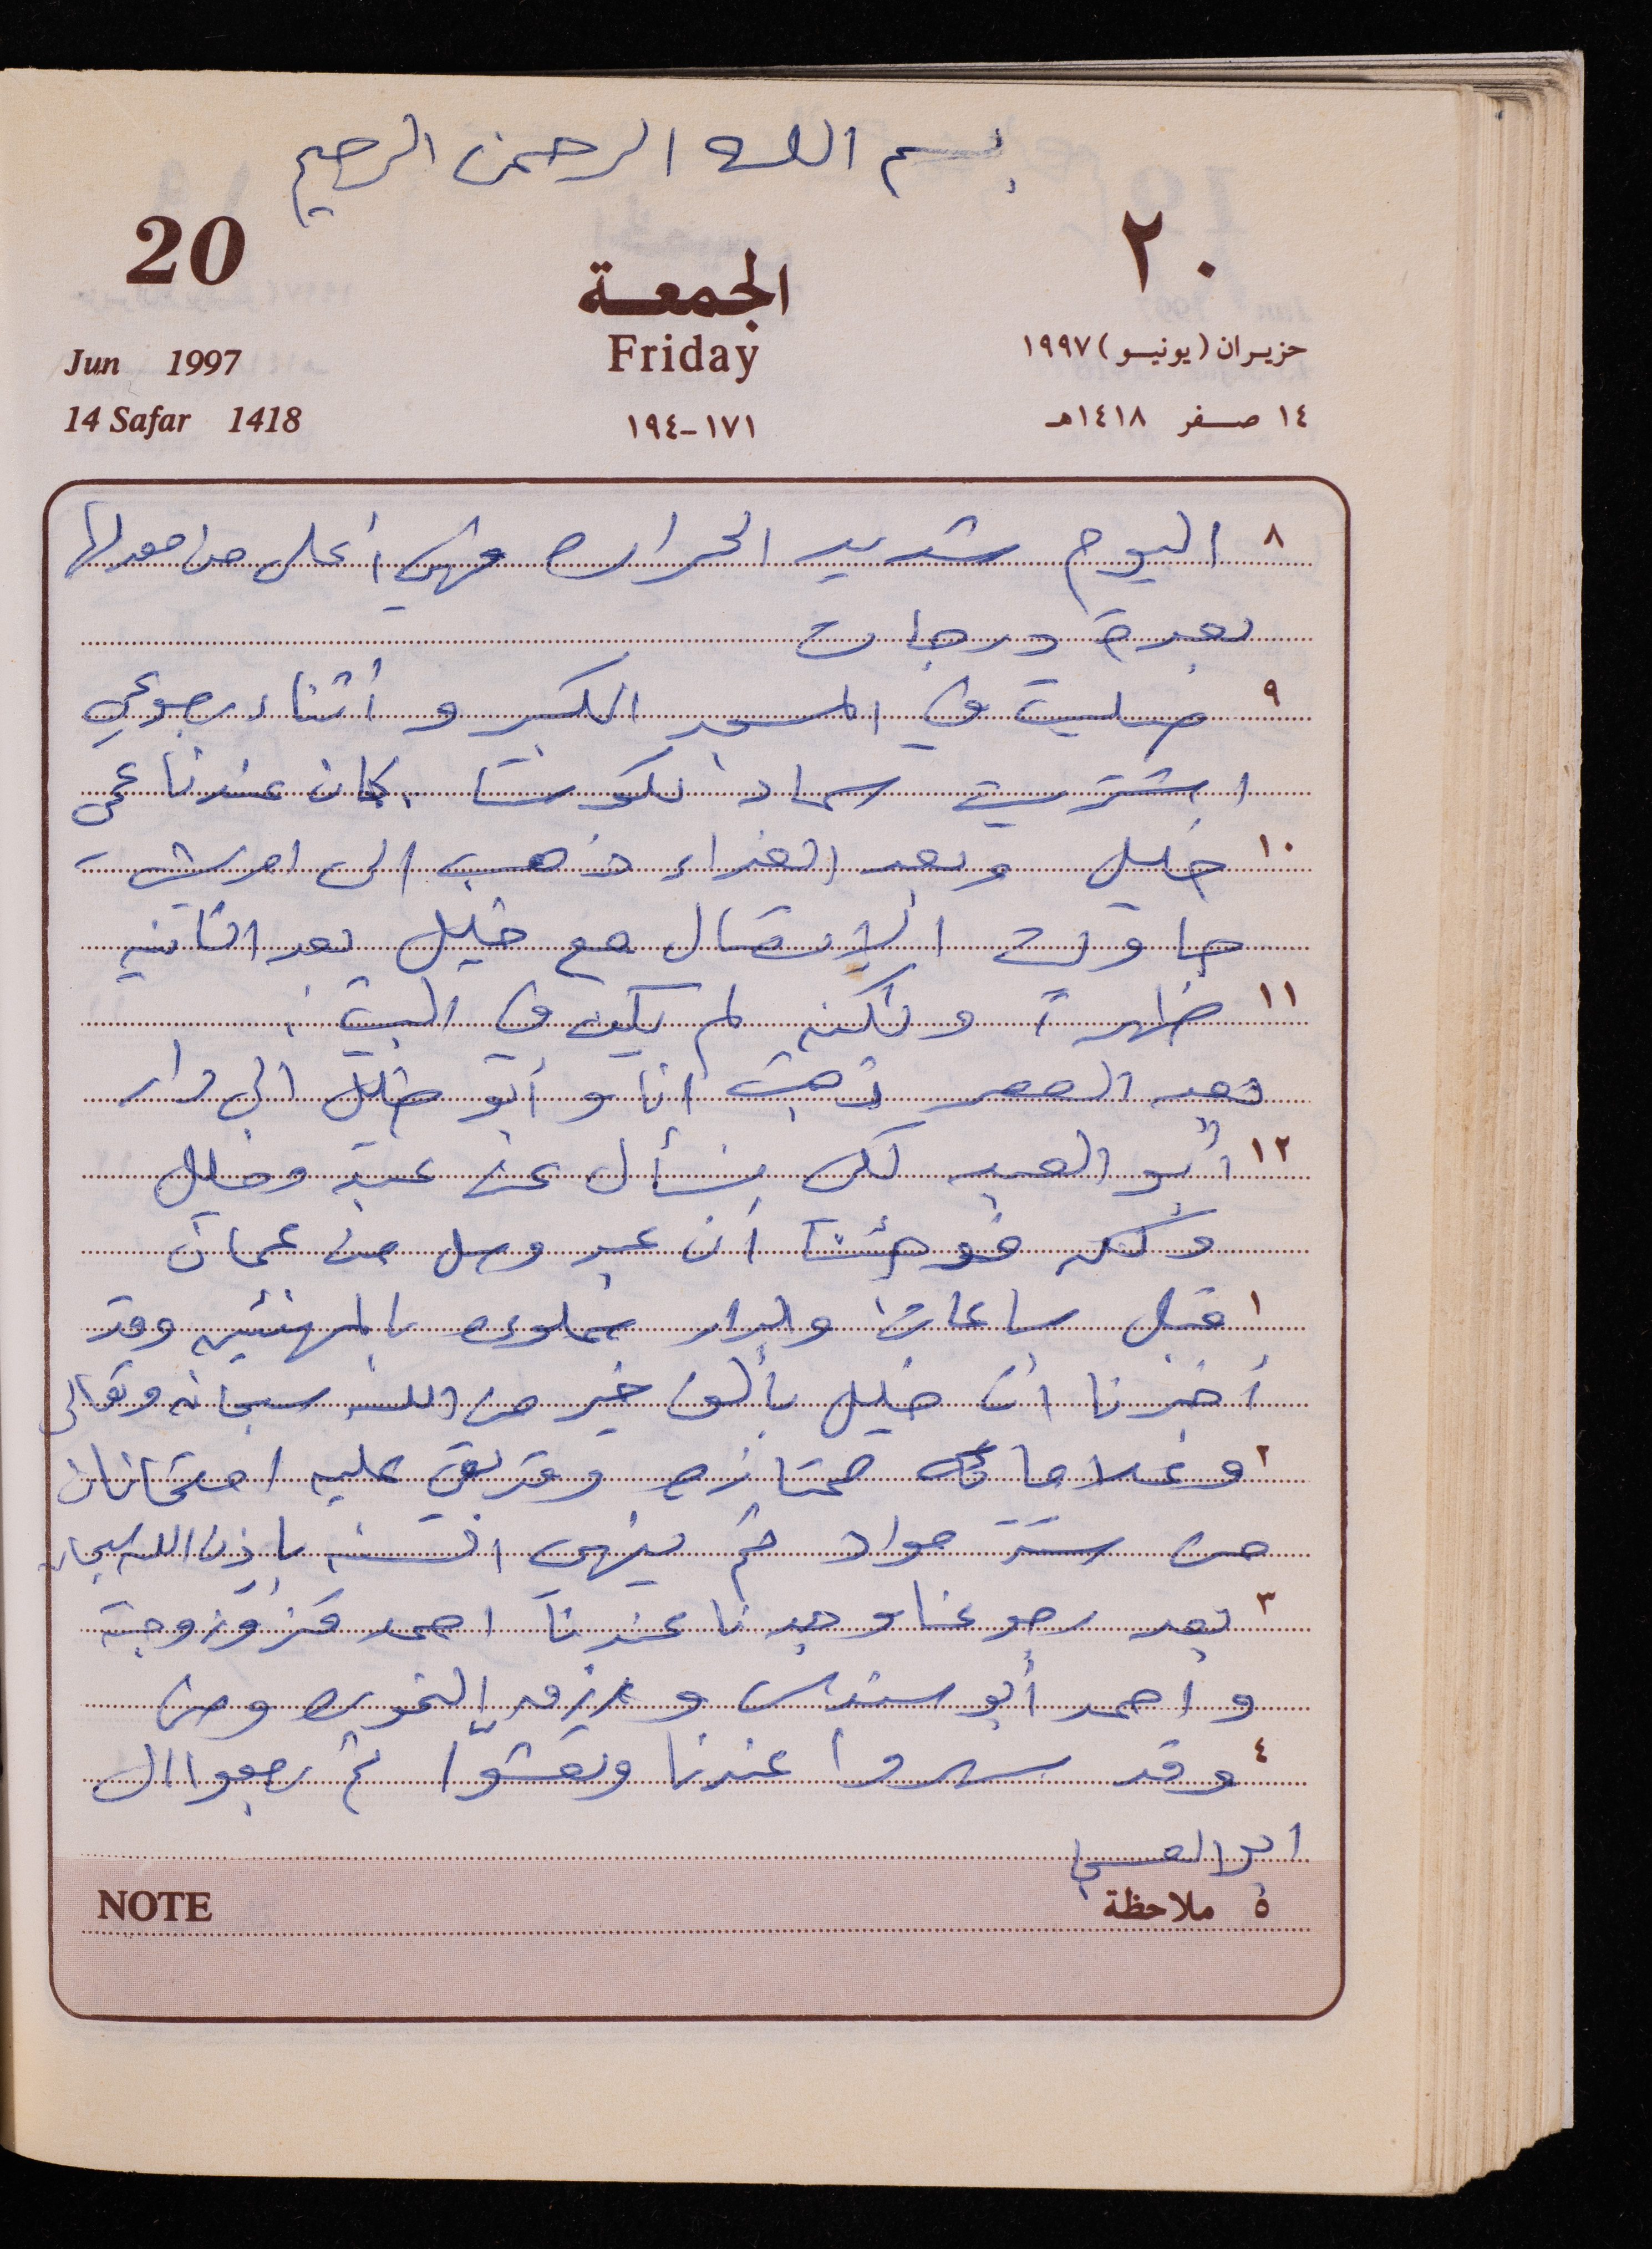 بسم الله الرحمن الرحيم
20
٢٠
الجمعة
Friday
Jun 1997
حزيران (يونيو) ١٩٩٧
14 Safar 1418
١٧١-١٩٤
١٤ صفر ١٤١٨هـ
٨ اليوم شديد الحراره فهي أعلى من معدلها
بعدة درجات
٩ صليت في المسجد الكبير و أثناء رجوعي
اشتريت سماد لكوسا . كان عندنا عمي
١٠ خليل وبعد الغداء ذهب الى
حاولت الاتصال مع خليل بعد الثانيه
١١ ظهراً ولكنه لم يكن في البيت .
بعد العصر ذهبت انا و أبو خليل الى دار
١٢ أبو العبد لكي نسأل عن عبد وخليل
ولكن فوجئنا أن عبد وصل من عمان
١ قبل ساعات والدار مملوءه بالمهنئين وقد
أخبرنا ان خليل بألف خير من الله سبحانه وتعالى
٢ وعلاماته ممتازه وقد بقي عليه امتحانان
من ستة مواد ثم ينهي السنه باذن الله سبحانه
٣ بعد رجوعنا وجدنا عندنا احمد وزوجته
و احمد أبو سندس و
٤ وقد سهروا عندنا وتعشوا ثم رجعوا الى
NOTE
٥ ملاحظة